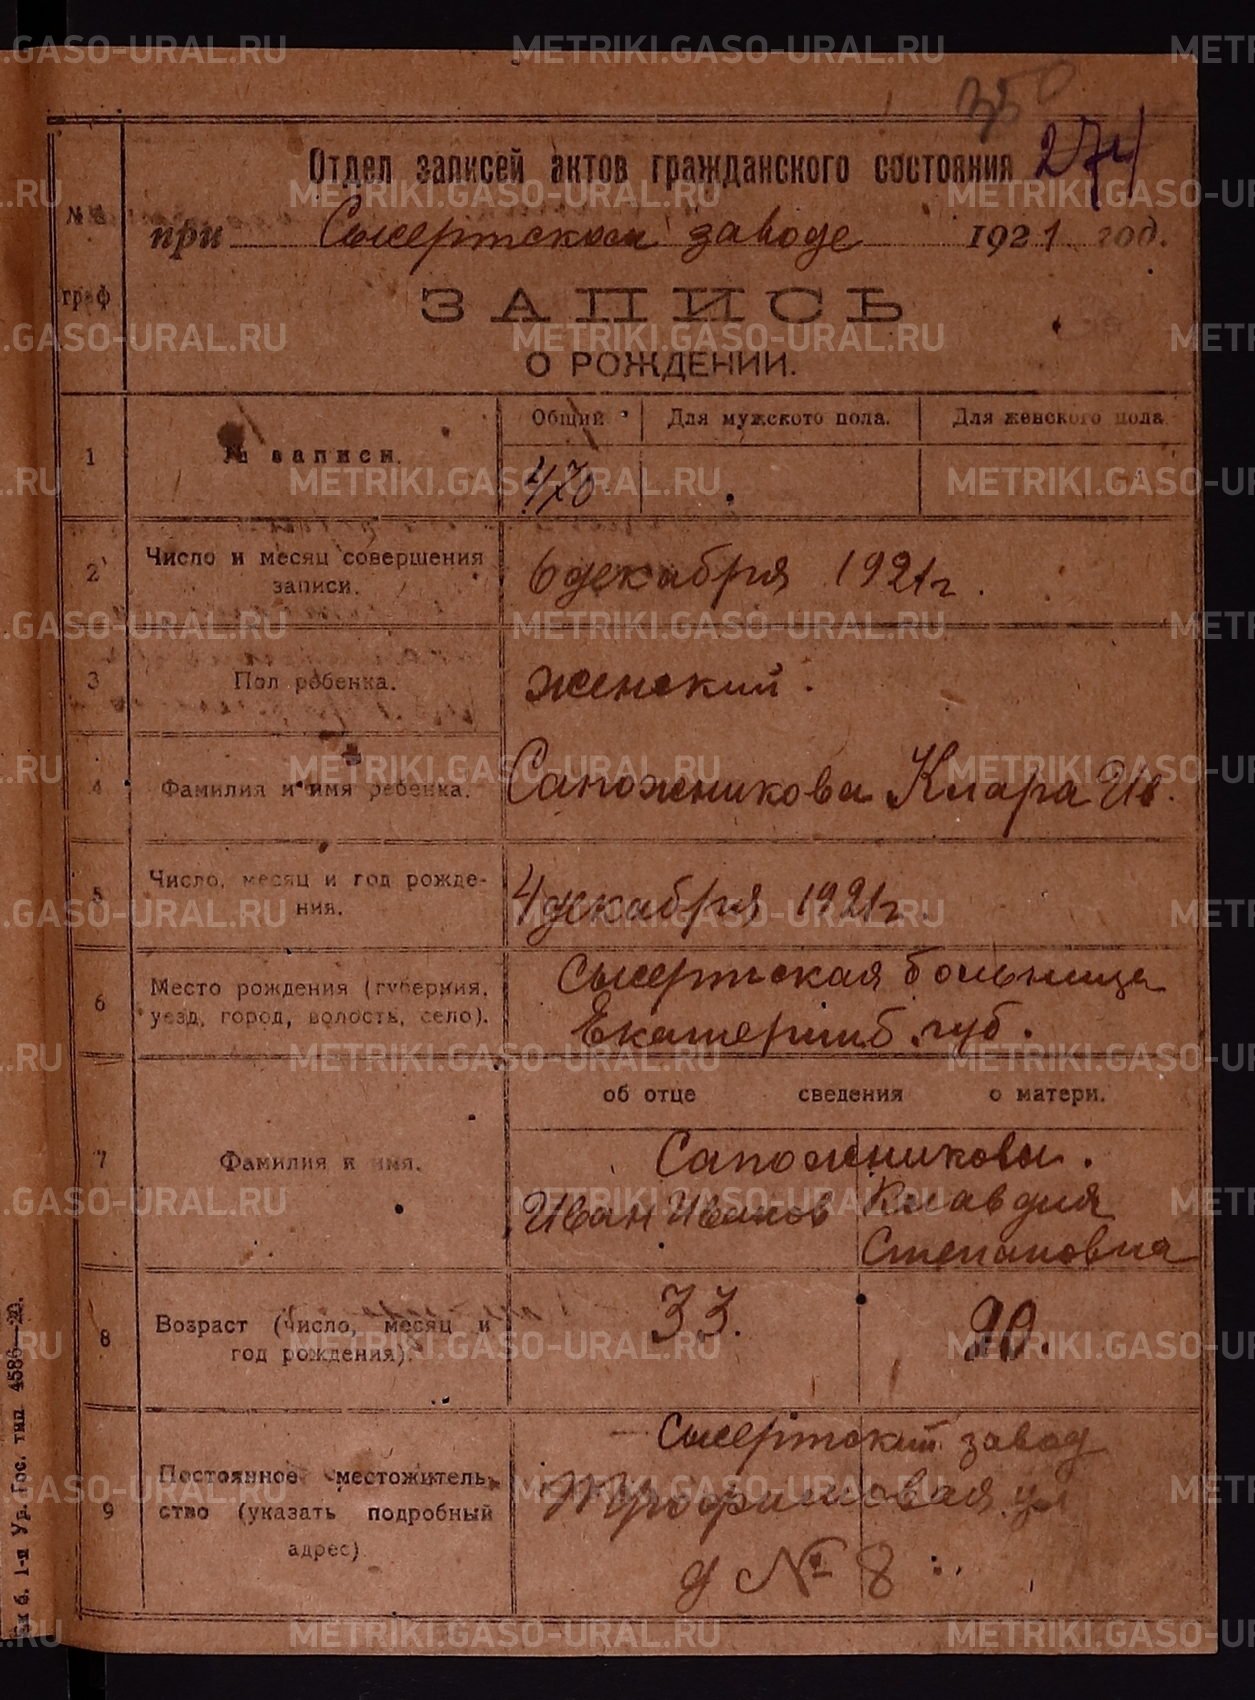 METRIKI.GASO-URAL.RU
350
Отдел записей актов гражданского состояния 274
при Сысертском заводе 1921 год.
№№ граф
ЗАПИСЬ
О РОЖДЕНИИ.
1 № записи. Общий Для мужского пола. Для женского пола
470
2 Число и месяц совершения записи. 6 декабря 1921 г.
3 Пол ребенка. женский.
4 Фамилия и имя ребенка. Сапожникова Клара Ив.
5 Число, месяц и год рождения. 4 декабря 1921 г.
6 Место рождения (губерния, уезд, город, волость, село). Сысертская больница
Екатеринб. губ.
об отце сведения о матери.
7 Фамилия и имя. Сапожниковы.
Иван Иванов Клавдия
Степановна
8 Возраст (число, месяц и год рождения). 33. 20.
9 Постоянное местожительство (указать подробный адрес) Сысертский завод
ул
д № 8
1-я Ур. Гос. тип 4586—20.